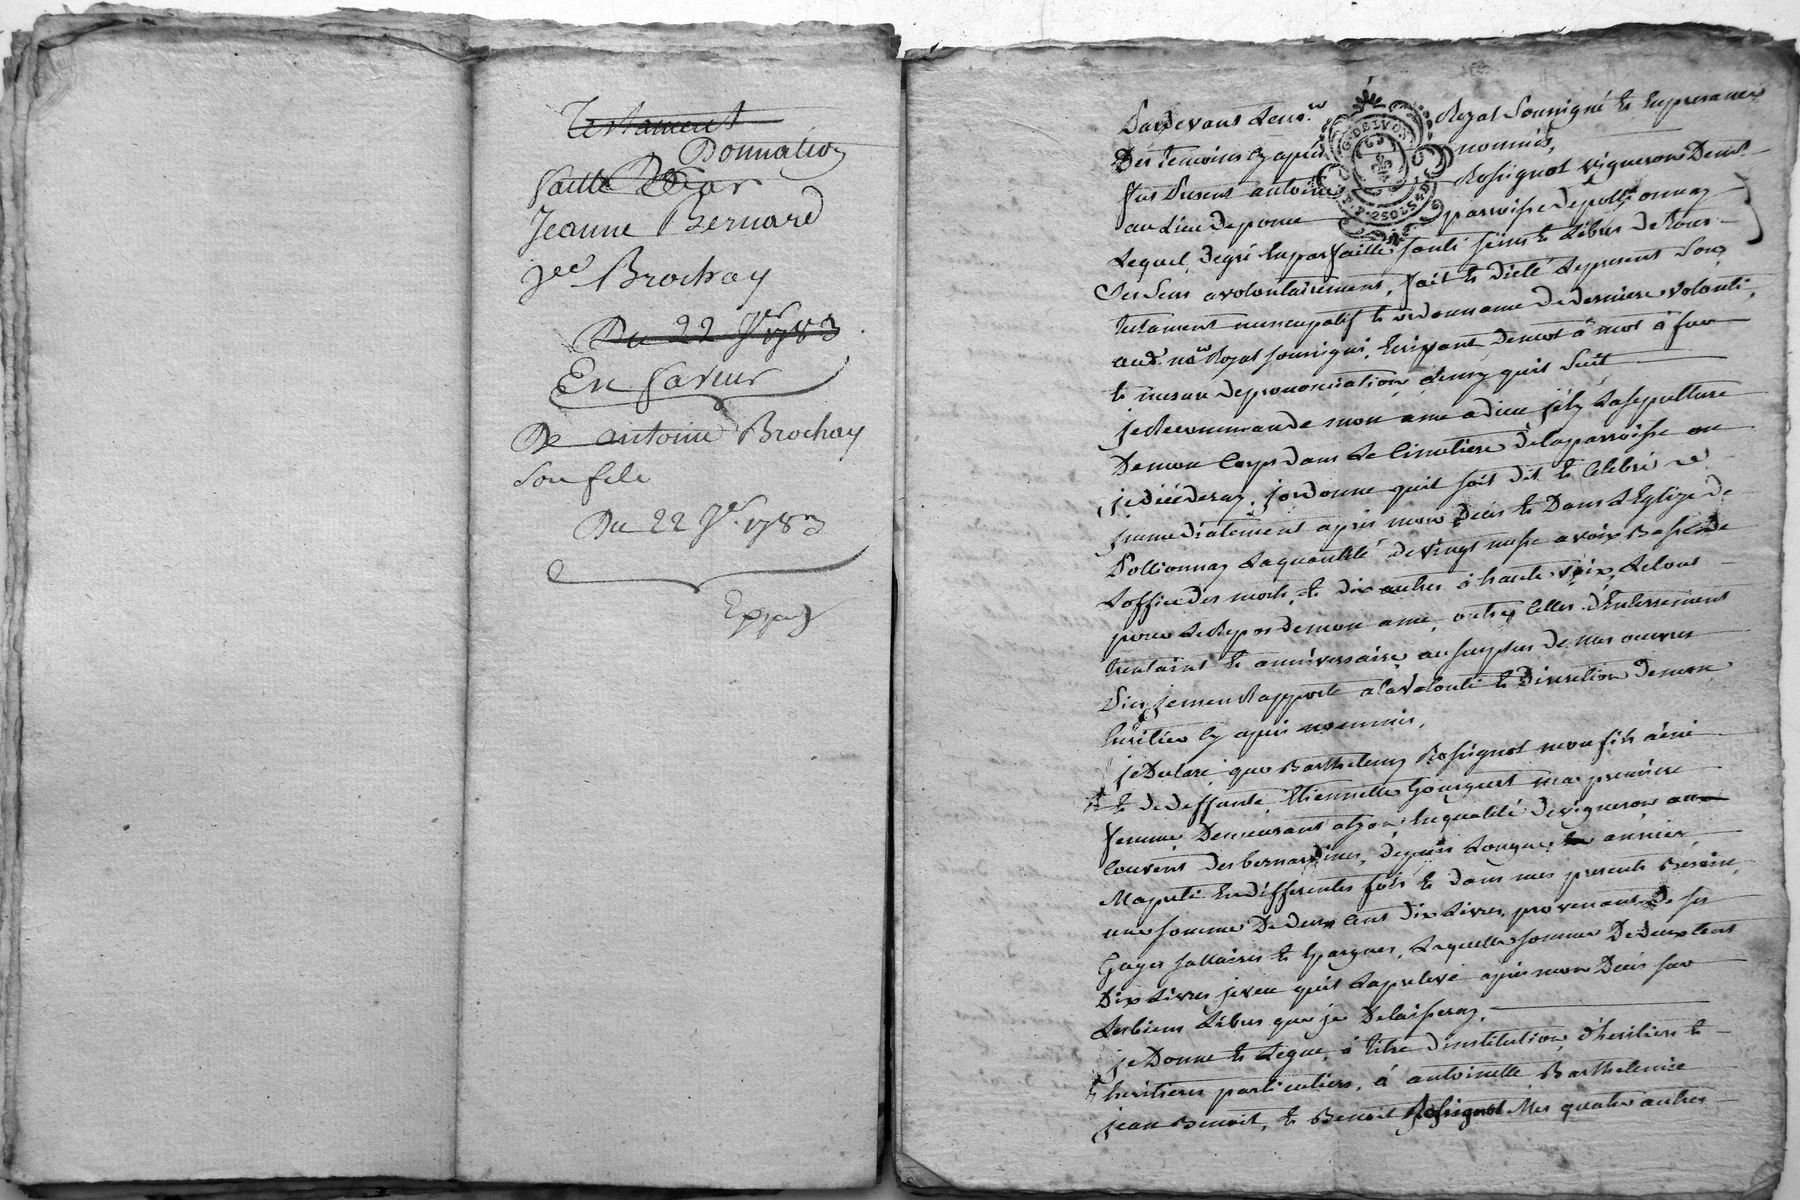 Testament
Donnation
faitte Par
Jeanne Bernard
Brochay
Du 22 9bre 1783
En faveur
De antoine Brochay
son fils
Du 22 9bre 1783
Expedié
Pardevant Le no.re Royal soussigné et En presence
Des temoins cy après nommés,
fut Present antoine Rossignol vigneron Demt
au Lieu de pome parroisse de pollionnay
Lequel de gré En parfaitte santé sens et Libre de tous
ses sens a volontairement, fait et dicté Le present son
testament nuncupatif et ordonnance de derniere volonté,
aud. no.re Royal soussigné, Ecrivant de mot à mot à fur
et mesure de prononciation d'iceluy quil suit
je Recommande mon ame a dieu j'elis La sepulture
De mon Corps dans Le Cimetiere de la parroisse ou
je décéderay, j'ordonne quil soit dit et Celebré
immediatement après mon Décès et Dans L'Eglize de
Pollionnay La quantité de vingt messe a voix Basse de
L'office des morts, et dix autres à haute voix, Le tout
pour Le Repos de mon ame, outre Celles d'Enterrement
trentaine et anniversaire, au surplus de mes oeuvres
Pies je men Rapporte a la volonté et Discretion de mon
heritier Cy après nommé,
je Declare que Barthelemy Rossignol mon fils ainé
et de deffunte Etiennette Gourguet ma premiere
femme, Demeurant a Lyon En qualité de vigneron au
Couvent des bernardines, depuis Longues années
M'a preté En differentes fois et dans mes presents Besoins,
une somme De deux Cent dix Livres, provenant de ses
Gages sallaires et Epargnes, Laquelle somme De deux Cent
Dix Livres je veu quil La preleve après mon Décès sur
Les biens Libres que je Delaisseray,
je Donne et Legue, à titre d'institution d'heritiers et
heritieres particuliers, à antoinette Barthelemie
jean Benoit, et Benoit Rossignol Mes quatre autres